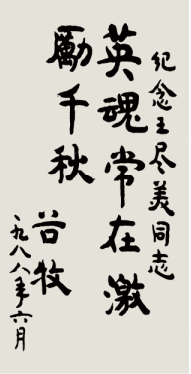 纪念王尽美同志
英魂常在激
励千秋
谷牧
一九八八年六月